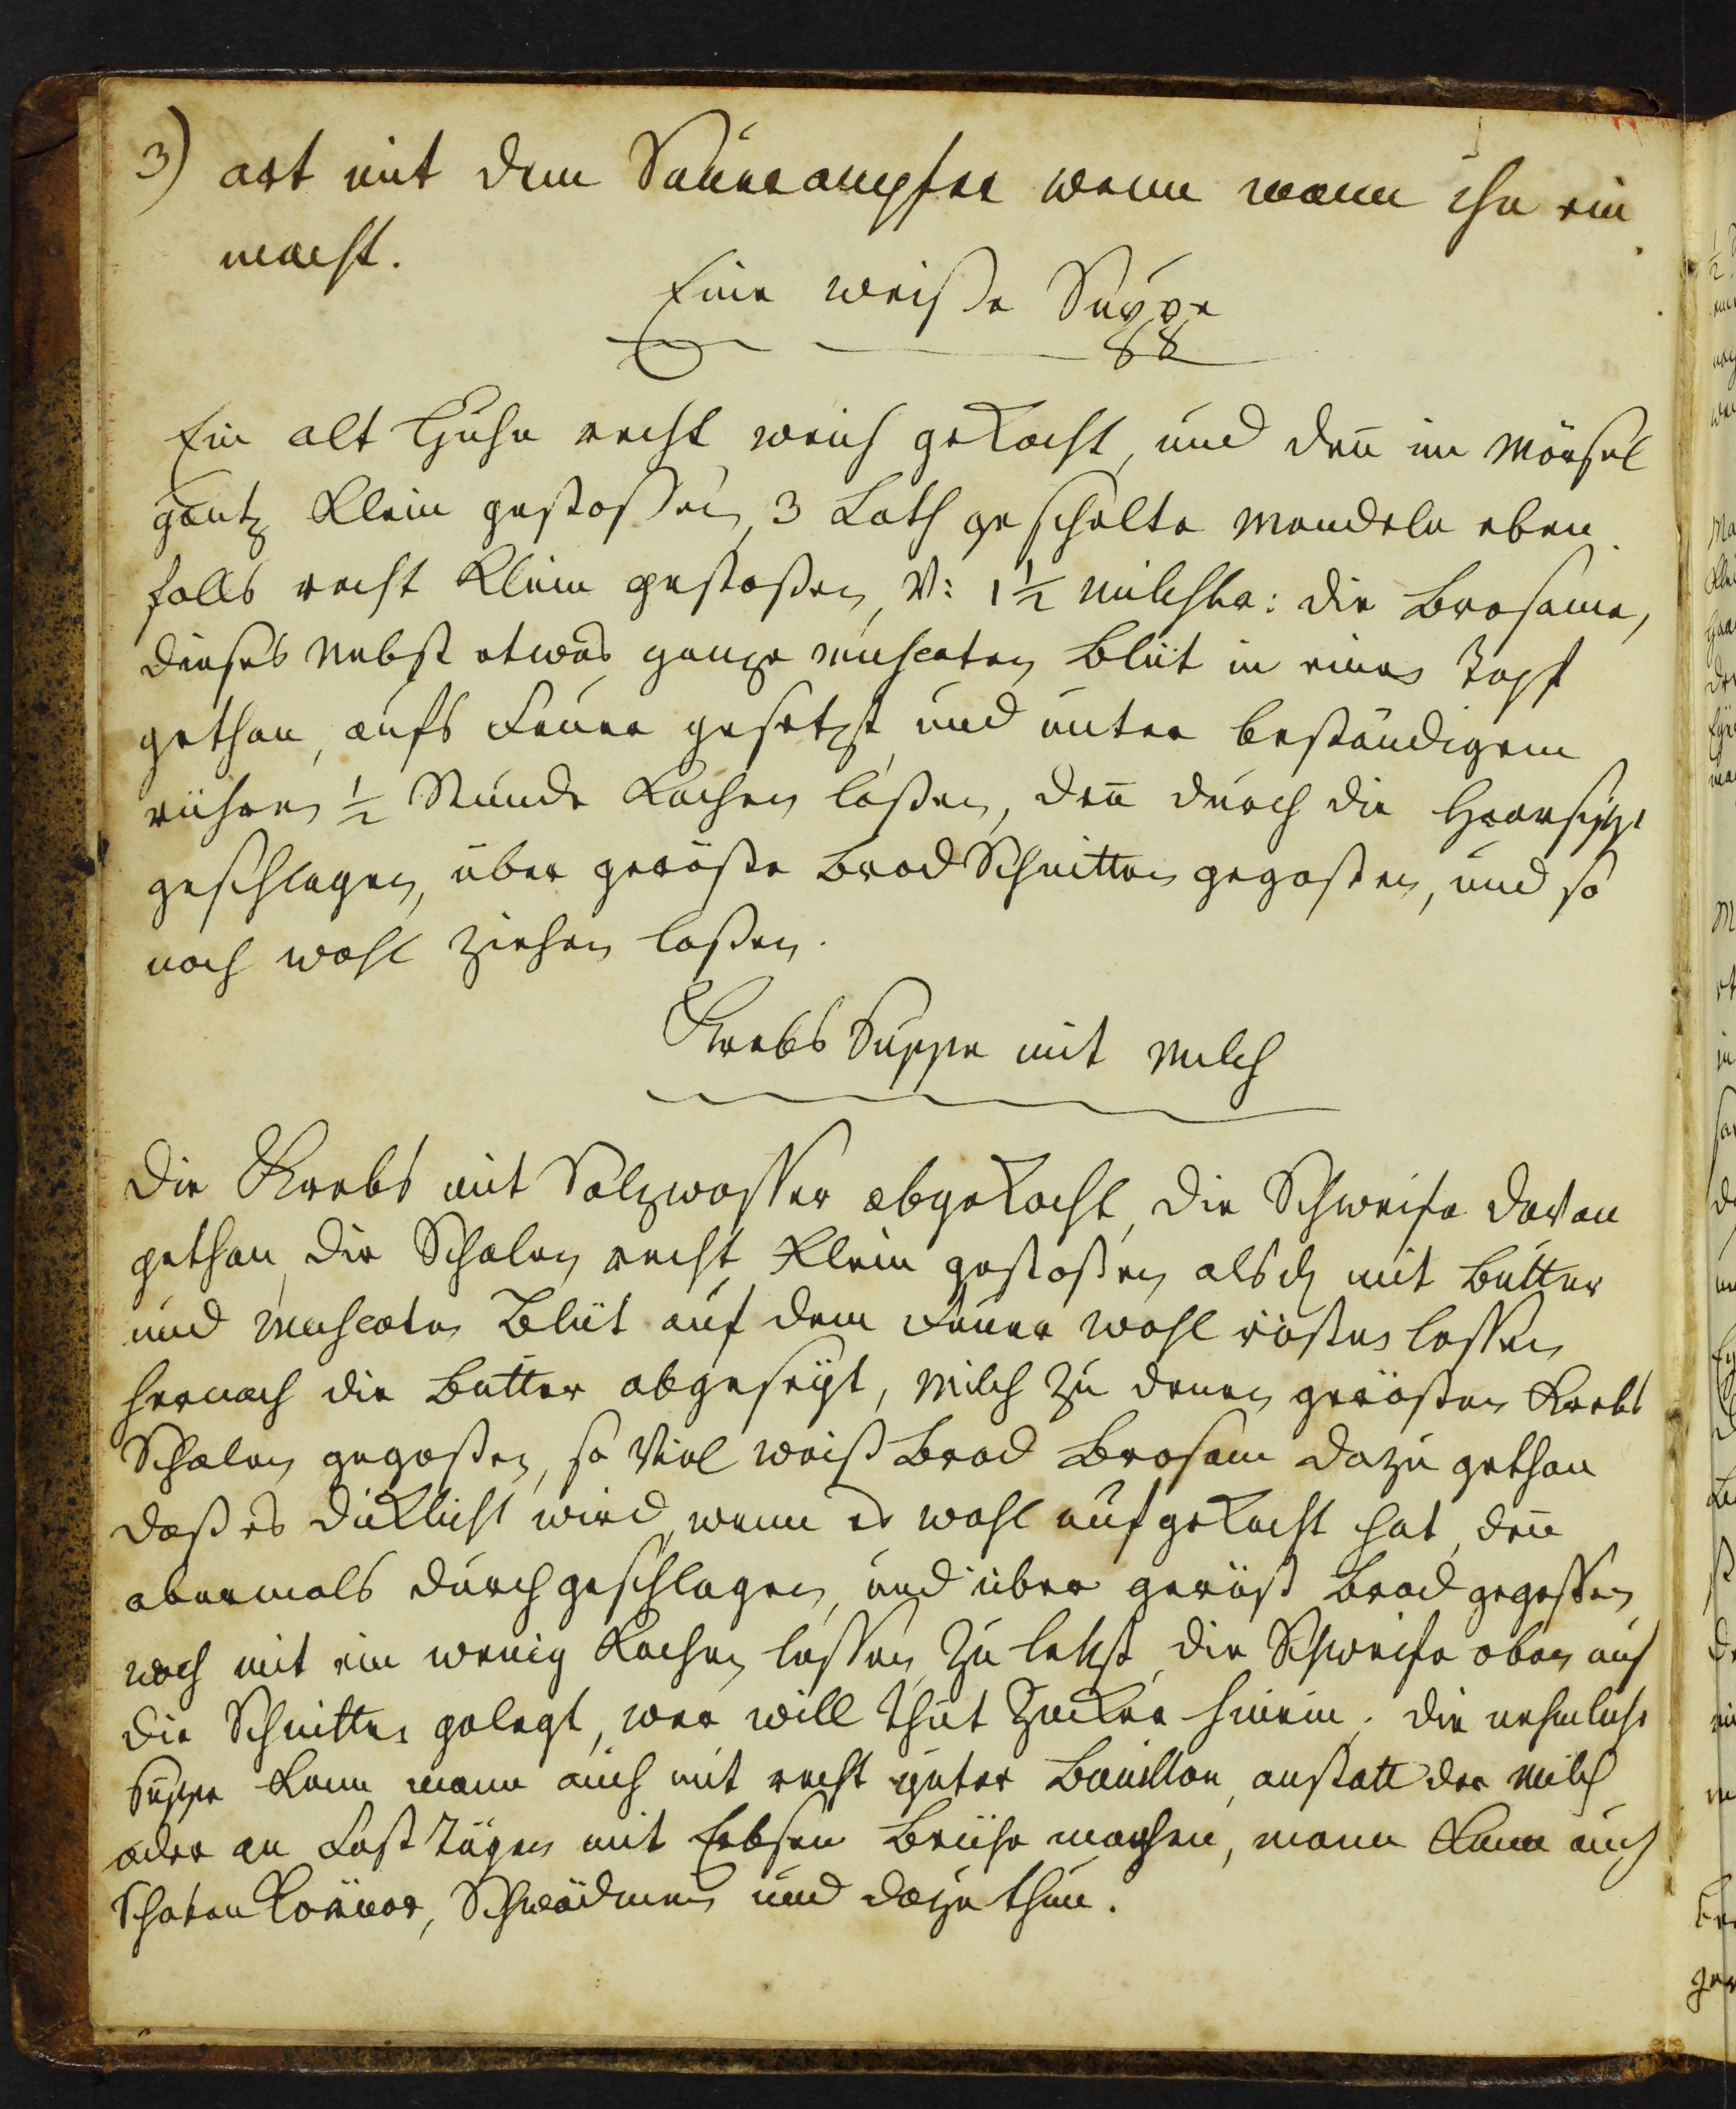 3) art mit dem Saurampfer wenn mann ihn ein
macht.
Eine weiße Suppe
Ein alt Huhn recht weich gekocht, und deñ im Mörsel
gantz klein gestoßen, 3 Loth geschelte Mandeln eben
falls recht klein gestoßen, V: 1 1/2 Milchbr: die Brosame,
dieses nebst etwas ganze muscaten Blüt in einen Topf
gethan, aufs Feuer gesetzt und unter beständigem
rühren 1/2 Stunde kochen laßen, deñ durch die Haarsippe
geschlagen, über geröste Brod Schnitten gegoßen, und so
noch wohl ziehen laßen.
Krebs Suppe mit Milch
Die Krebs mit Salzwasser abgekocht, die Schweife davon
gethan, die Schalen recht klein gestoßen, alsd mit Butter
und Muscaten Blüt auf dem Feuer wohl rösten lassen
hernach die Butter abgeseyt, Milch zu denen gerösten Krebs
Schalen gegoßen, so viel weiß Brod Brosam dazu gethan
daß es dicklicht wird, wenn es wohl aufgekocht hat, deñ
abermals durchgeschlagen, und über geröst Brod gegossen
noch mit ein wenig kochen lassen, zu letzt die Schweife oben auf
die Schnitten gelegt, wer will thut Zucker hinein. Die nehmliche
Suppe kann mann auch mit recht guter Bouillon, anstatt der Milch
oder an Fast Tägen mit Erbsen Brühe machen, mann kann auch
und dazu thun.